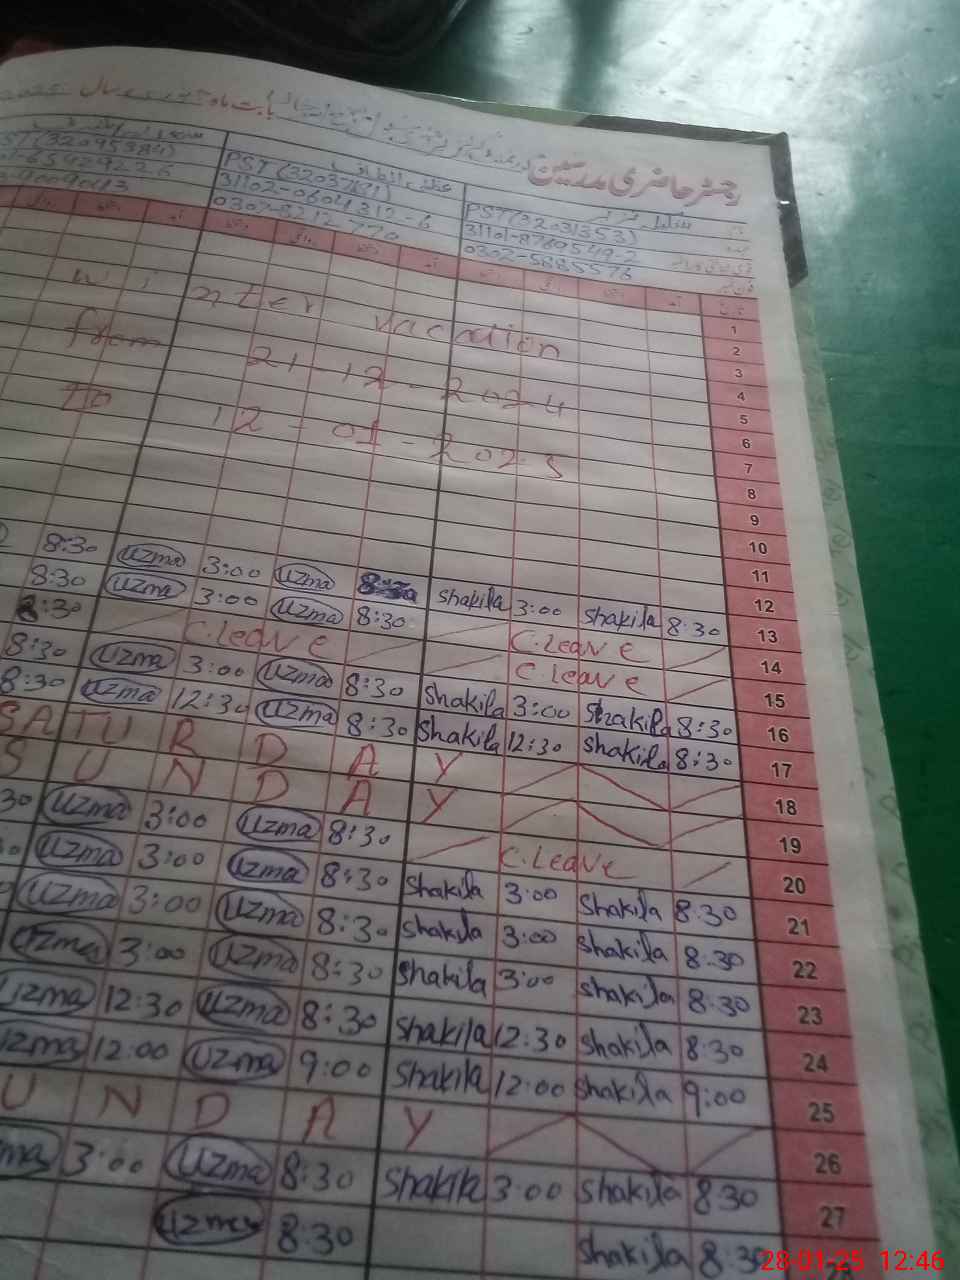 رجسٹر حاضری مدرسین
بابت ماہ
سال
PST (32031353)
31101-8760549-2
0302-5885576
PST (32037671)
31102-0604312-6
0307-8212770
تاریخ
1
2
3
4
5
6
7
8
9
10
11
12
winter vacation
from 21-12-2024
to 12-01-2025
8:30 Uzma 3:00 Uzma 8:30 Shakila 3:00 Shakila 8:30 13
8:30 Uzma 3:00 Uzma 8:30 C.Leave 14
8:30 C.Leave C.Leave 15
8:30 Uzma 3:00 Uzma 8:30 Shakila 3:00 Shakila 8:30 16
8:30 Uzma 12:30 Uzma 8:30 Shakila 12:30 Shakila 8:30 17
SATURDAY 18
SUNDAY 19
30 Uzma 3:00 Uzma 8:30 C.Leave 20
Uzma 3:00 Uzma 8:30 Shakila 3:00 Shakila 8:30 21
Uzma 3:00 Uzma 8:30 Shakila 3:00 Shakila 8:30 22
Uzma 3:00 Uzma 8:30 Shakila 3:00 Shakila 8:30 23
Uzma 12:30 Uzma 8:30 Shakila 12:30 Shakila 8:30 24
Uzma 12:00 Uzma 9:00 Shakila 12:00 Shakila 9:00 25
UNDAY 26
ma 3:00 Uzma 8:30 Shakila 3:00 Shakila 8:30 27
Uzma 8:30 Shakila 8:30
28-01-25 12:46